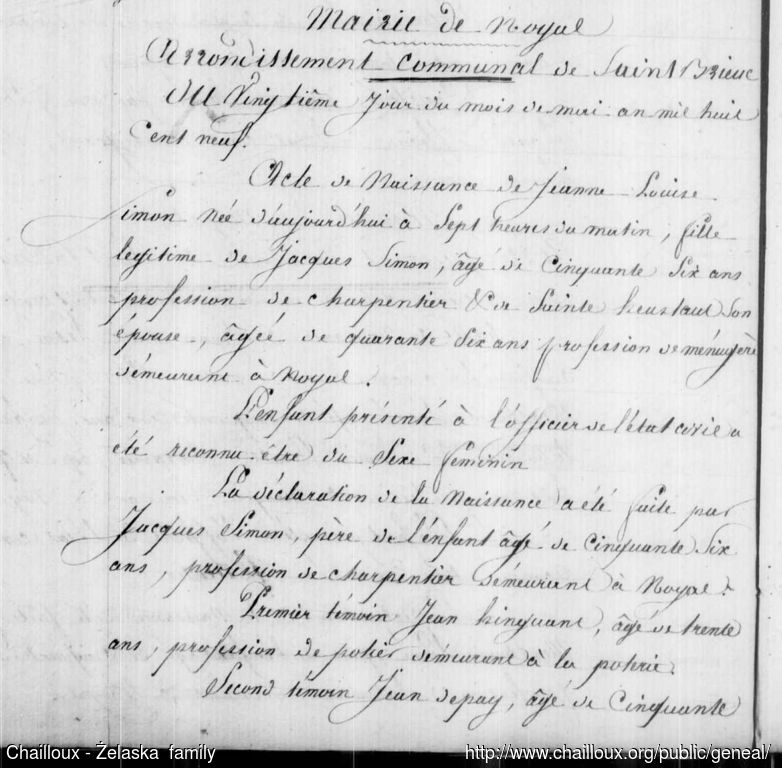 Mairie de Noyal
Arrondissement communal de Saint Brieuc
Du Vingtiême Jour du mois de mai an mil huit
Cent neuf.
Acte de Naissance de Jeanne Louise
Simon née d'aujourd'hui à Sept heures du matin, fille
legitime de Jacques Simon, âgé de Cinquante Six ans
profession de charpentier & de Sainte son
épouse, âgée de quarante Six ans profession de ménagère
démeurant à Noyal.
L'enfant présenté à l'officier de l'état civil a
été reconnu être du Sexe feminin
La déclaration de la Naissance a été faite par
Jacques Simon, père de l'enfant âgé de Cinquante Six
ans, profession de charpentier démeurant à Noyal.
Premier témoin Jean hinguant, âgé de trente
ans, profession de potier démeurant à la poterie.
Second témoin Jean depay, âgé de Cinquante
Chailloux - Želaska family
http://www.chailloux.org/public/geneal/